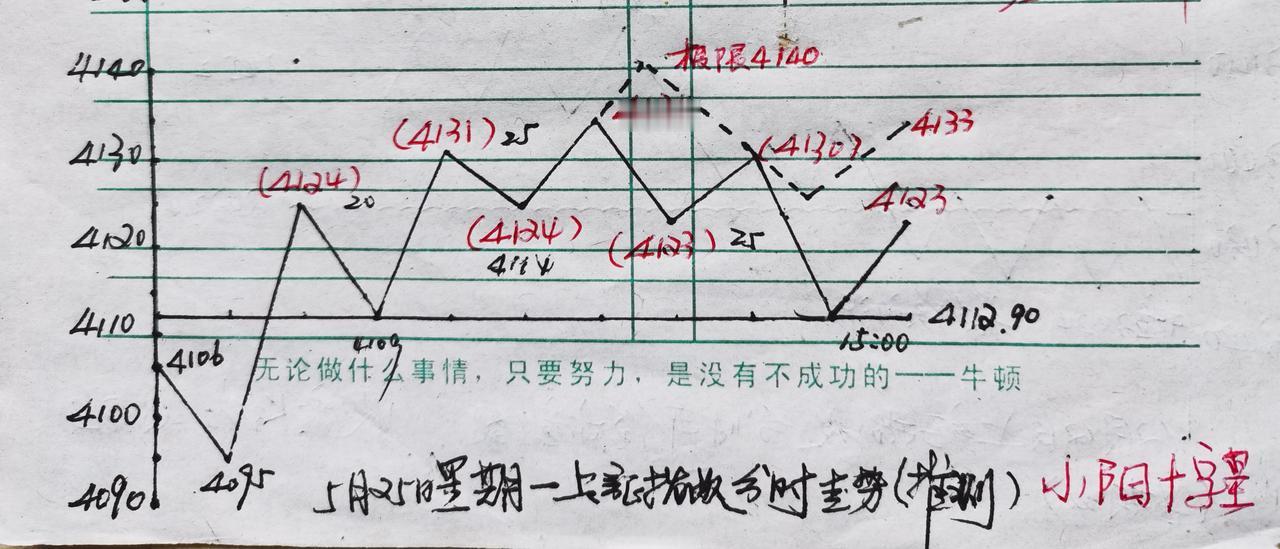 4140
极限4140
4133
(4131) 25
4130
(4130)
(4124) 20
4123
4120
(4124)
4114
(4123) 25
4110
4112.90
4109
15:00
4106
无论做什么事情，只要努力，是没有不成功的——牛顿
4100
4095
4090
5月25日星期一上证指数分时走势(推测) 小阳十字星